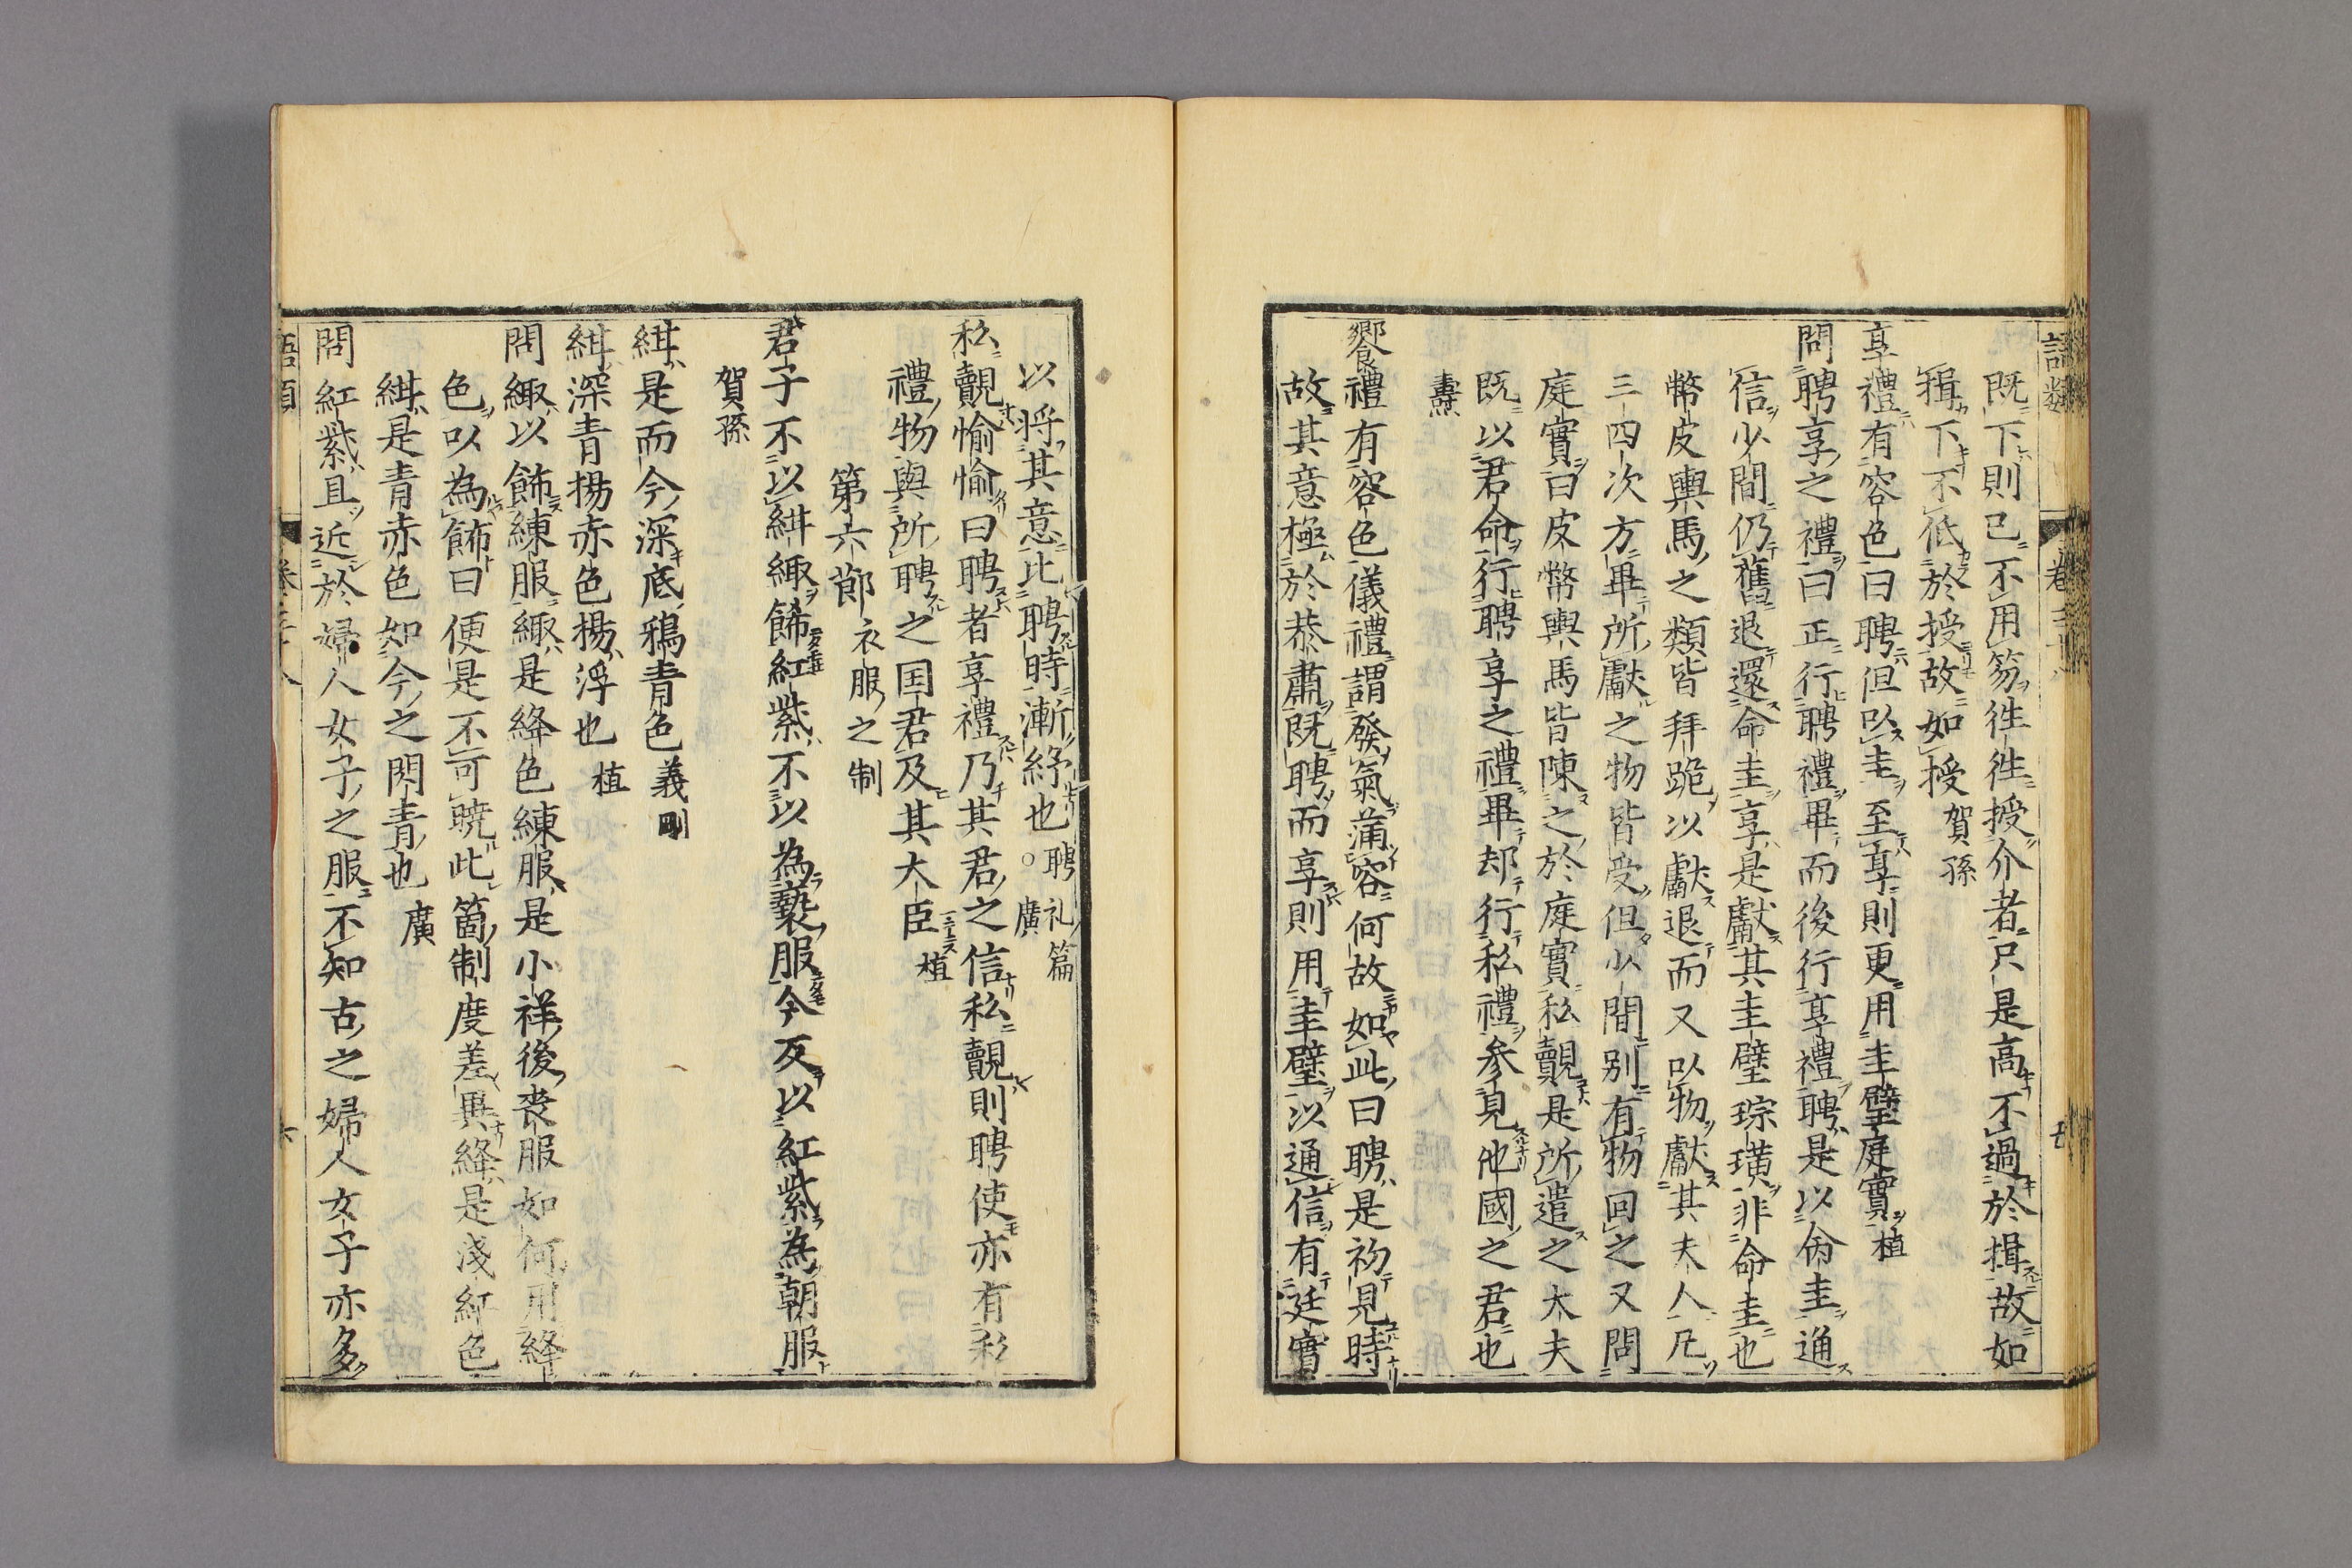 語類
卷三十八
既下則已不用笏徃徃授介者只是高不過於揖故如
揖下不低於授故如授 賀孫
享禮有容色曰聘但以圭至享則更用圭璧庭實 植
問聘享之禮曰正行聘禮畢而後行享禮聘是以命圭通
信少間仍舊退還命圭享是獻其圭璧琮璜非命圭也
幣皮輿馬之類皆拜跪以獻退而又以物獻其夫人凡
三四次方畢所獻之物皆受但少間别有物回之又問
庭實曰皮幣輿馬皆陳之於庭實私覿是所遣之大夫
既以君命行聘享之禮畢却行私禮參見他國之君也
燾
饗禮有容色儀禮謂發氣滿容何故如此曰聘是初見時
故其意極於恭肅既聘而享則用圭璧以通信有廷實
以将其意比聘時漸紓也 聘礼篇 ○ 廣
私覿愉愉曰聘者享禮乃其君之信私覿則聘使亦有私
禮物與所聘之囯君及其大臣 植
第六節 衣服之制
君子不以紺緅餙紅紫不以為褻服今反以紅紫為朝服
賀孫
紺是而今深底鴉青色 義剛
紺深青揚赤色揚浮也 植
問緅以飾練服緅是絳色練服是小祥後喪服如何用絳
色以為飾曰便是不可曉此箇制度差異絳是淺紅色
紺是青赤色如今之閃青也 廣
問紅紫且近於婦人女子之服不知古之婦人女子亦多
語類
卷三十八
六